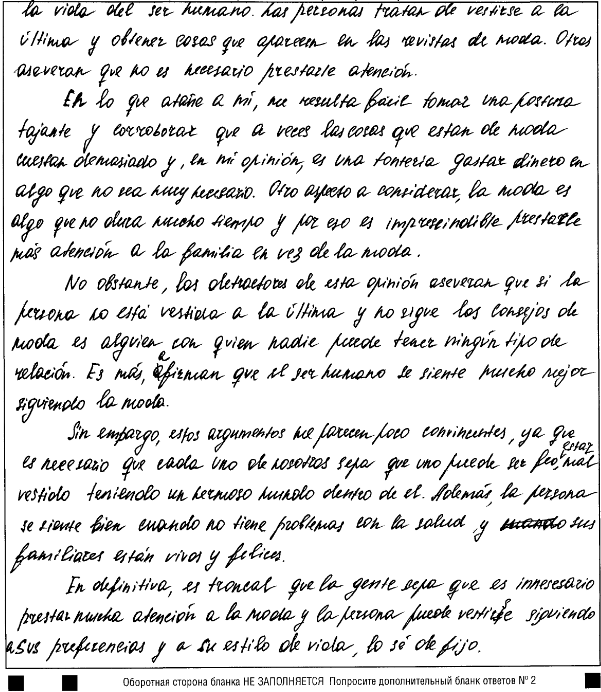 la vida del ser humano. Las personas tratan de vestirse a la
última y obtener cosas que aparecen en las revistas de moda. Otros
aseveran que no es necesario prestarle atención.
En lo que atañe a mí, me resulta fácil tomar una postura
tajante y corroborar que a veces las cosas que estan de moda
cuestan demasiado y, en mi opinión, es una tontería gastar dinero en
algo que no sea muy necesario. Otro aspecto a considerar, la moda es
algo que no dura mucho tiempo y por eso es imprescindible prestarle
más atención a la familia en vez de la moda.
No obstante, los detractores de esta opinión aseveran que si la
persona no está vestida a la última y no sigue los consejos de
moda es alguien con quien nadie puede tener ningún tipo de
relación. Es más, afirman que el ser humano se siente mucho mejor
siguiendo la moda.
Sin embargo, estos argumentos me parecen poco convincentes, ya que
es necesario que cada uno de nosotros sepa que uno puede ser feo, estar mal
vestido teniendo un hermoso mundo dentro de el. Además, la persona
se siente bien cuando no tiene problemas con la salud y sus
familiares están vivos y felices.
En definitiva, es troncal que la gente sepa que es innesesario
prestar mucha atención a la moda y la persona puede vestirse siguiendo
a sus preferencias y a su estilo de vida, lo sé de fijo.
Оборотная сторона бланка НЕ ЗАПОЛНЯЕТСЯ Попросите дополнительный бланк ответов № 2